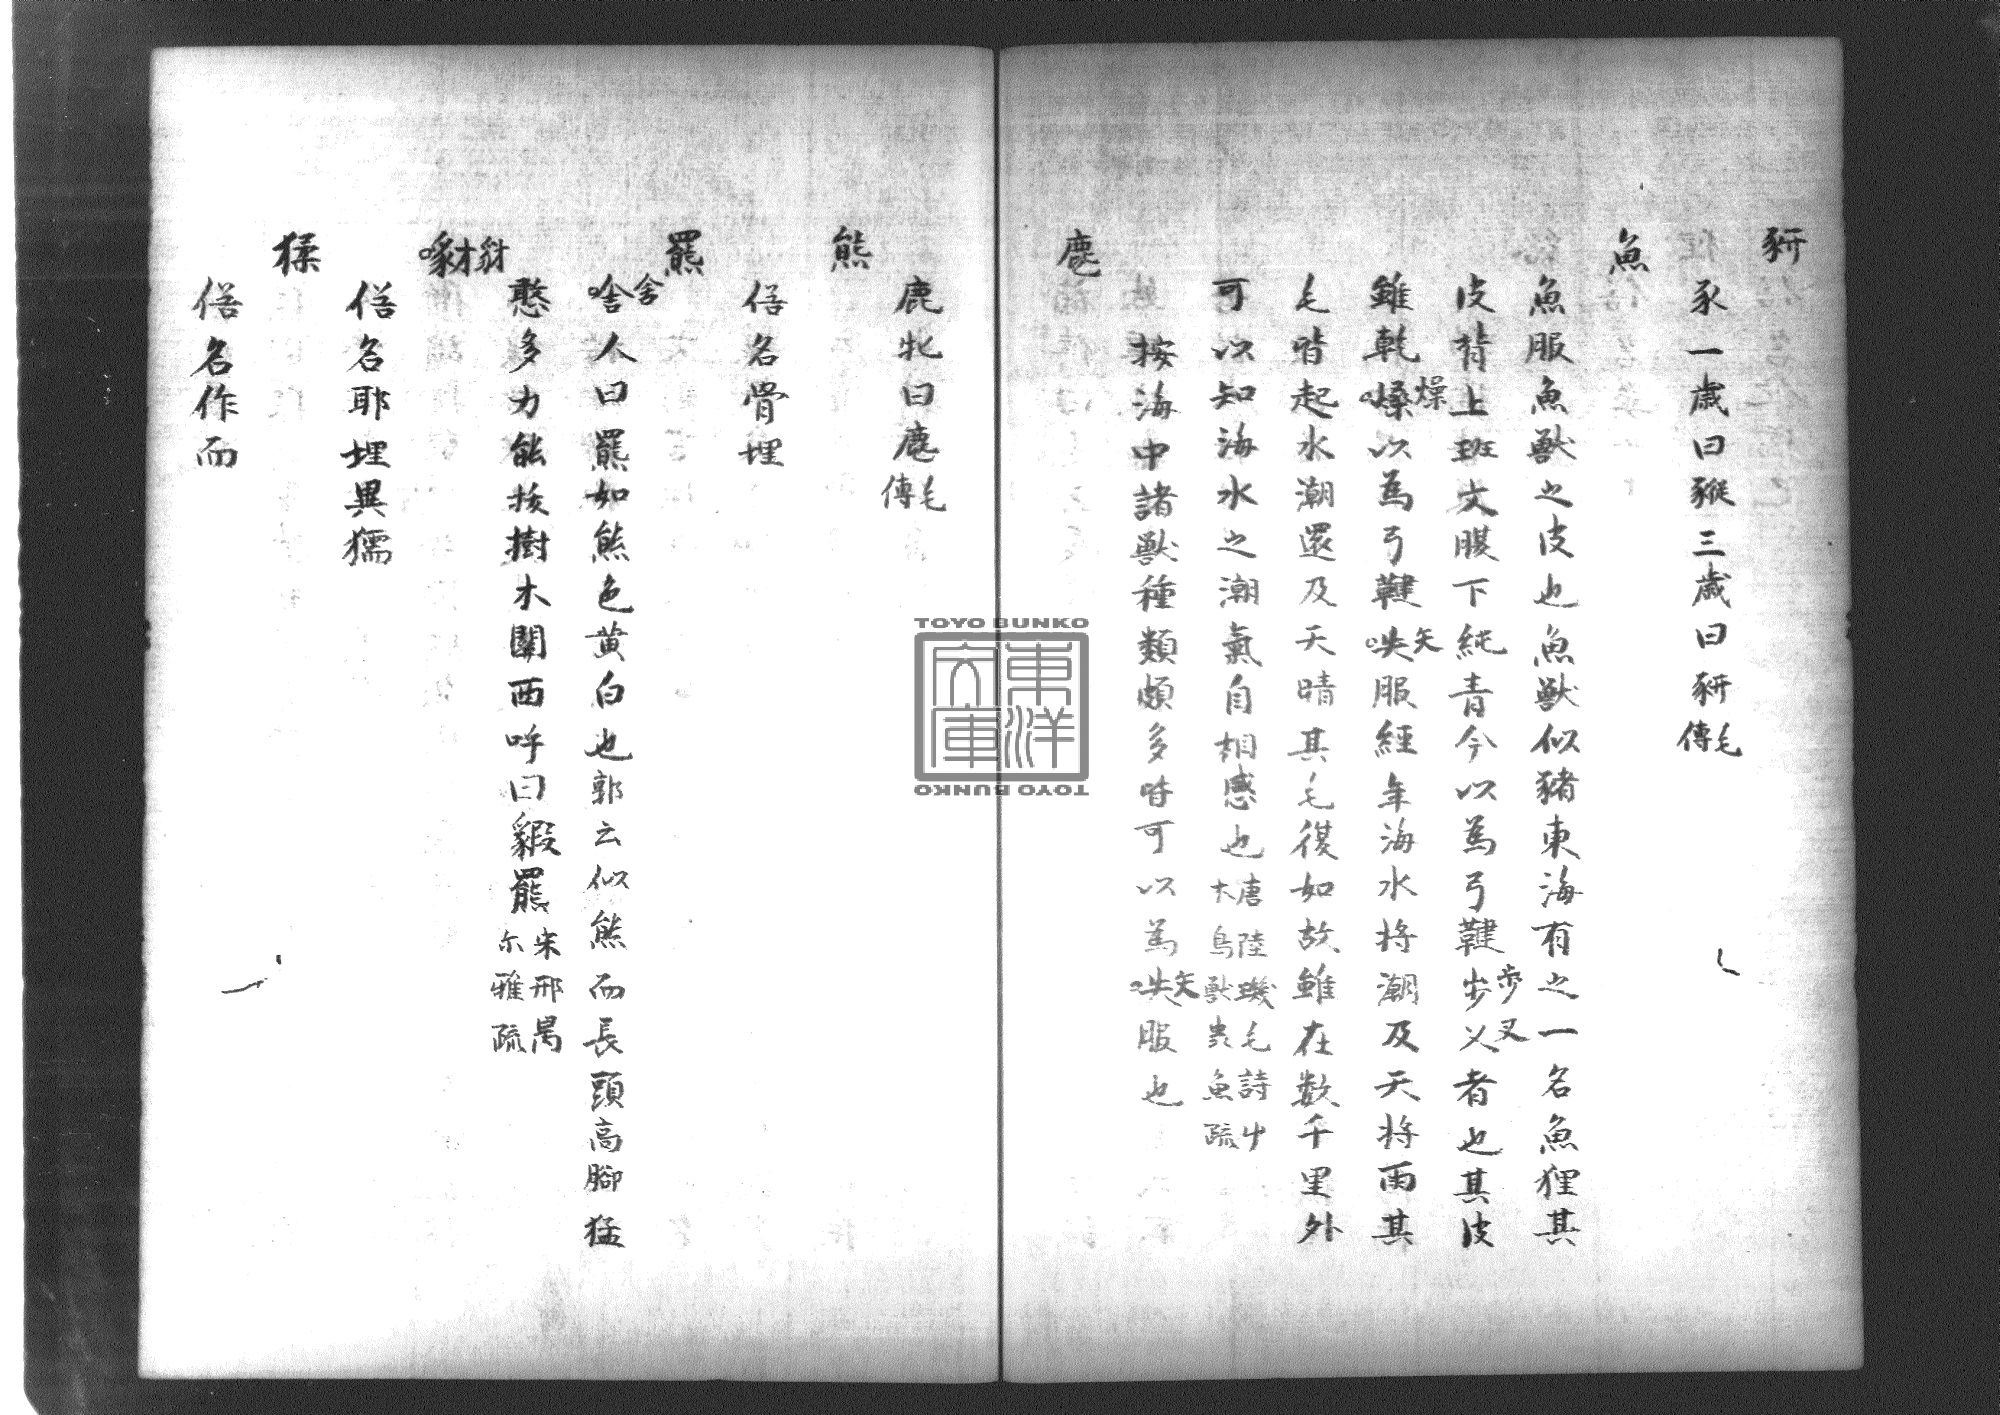 豜
豕一歲曰豵三歲曰豜毛傳
魚
魚服魚獸之皮也魚獸似豬東海有之一名魚狸其
皮背上班文腹下純青今以為弓鞬步乂者也其皮
步叉
雖乾㷮以為弓鞬㕭服經年海水将潮及天将雨其
燥
矢
毛皆起水潮還及天晴其毛復如故雖在数千里外
可以知海水之潮氣自相感也唐陸璣毛詩屮木鳥獸虫魚疏
按海中諸獸種類頗多皆可以為㕭服也
矢
麀
鹿牝曰麀毛傳
熊
俗名骨埋
羆
啥人曰羆如熊色黄白也郭云似熊而長頭高腳猛
舍
憨多力能拔樹木關西呼曰貑羆宋邢昺尔雅疏
豺
俗名耶埋異獳
猱
俗名作而
TOYO BUNKO
東洋文庫
TOYO BUNKO